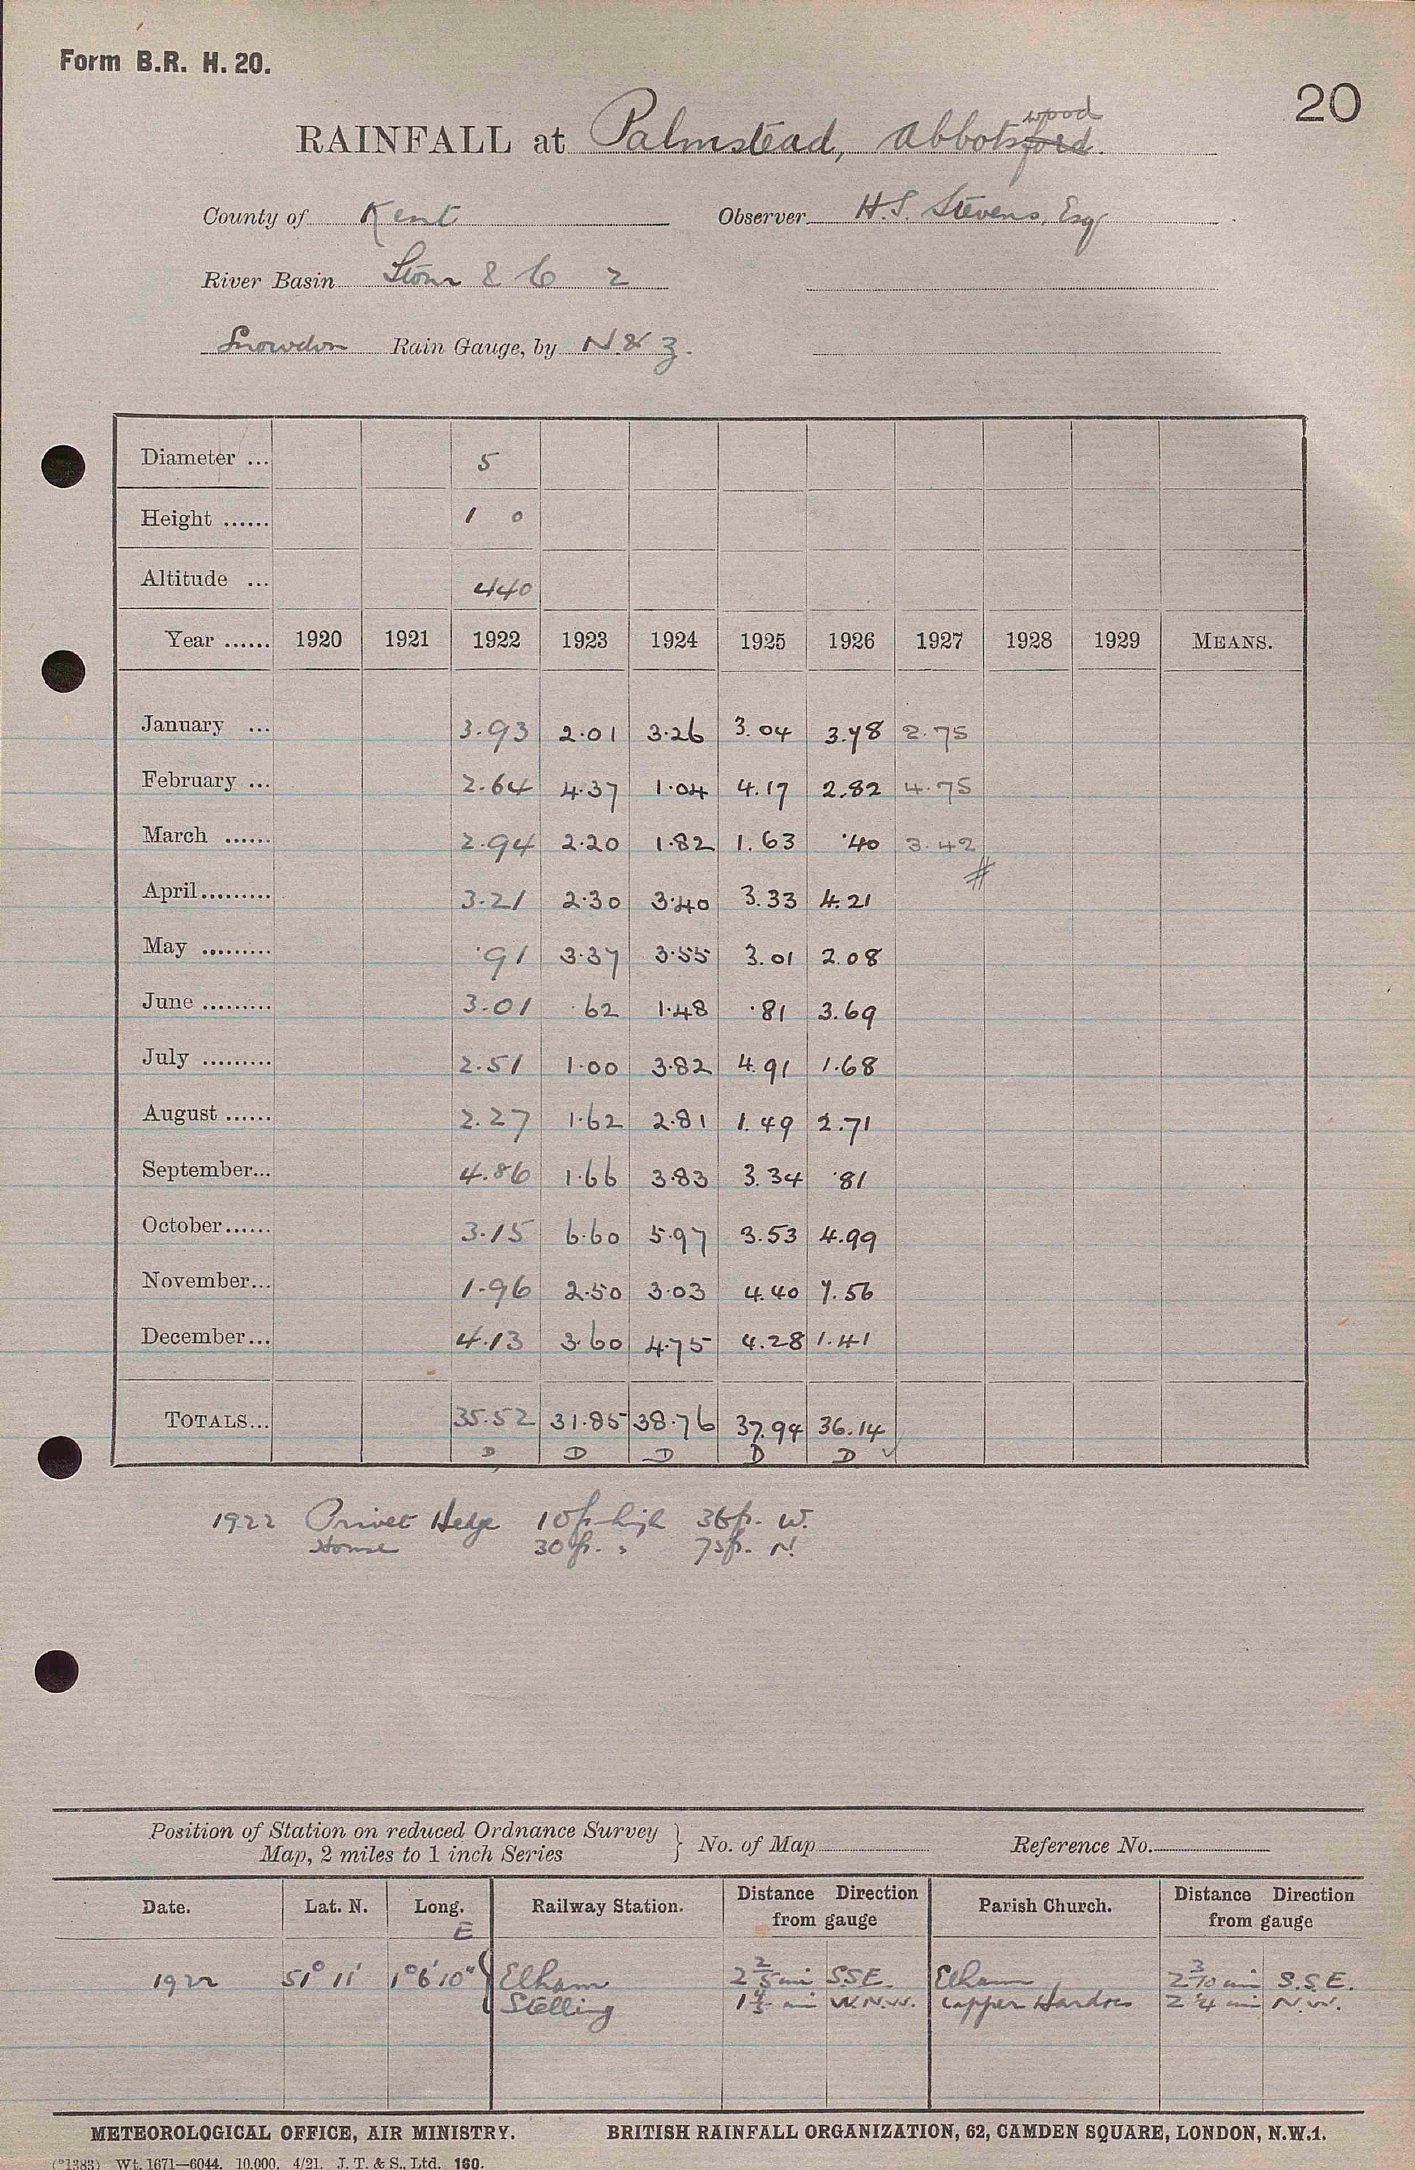 Form B.R. H. 20.
20
RAINFALL at Palmstead, Abbotsford. wood
County of Kent Observer H.S. Stevens, Esq
River Basin Stour & C 2
Snowdon Rain Gauge, by N. & Z.
Diameter ... 5
Height ...... 1 0
Altitude ... 440
Year ...... 1920 1921 1922 1923 1924 1925 1926 1927 1928 1929 MEANS.
January ... 3.93 2.01 3.26 3.04 3.78 2.75
February ... 2.64 4.37 1.04 4.17 2.82 4.75
March ...... 2.94 2.20 1.82 1.63 .40 3.42
April......... 3.21 2.30 3.40 3.33 4.21
May ......... .91 3.37 3.55 3.01 2.08
June ......... 3.01 .62 1.48 .81 3.69
July ......... 2.51 1.00 3.82 4.91 1.68
August ...... 2.27 1.62 2.81 1.49 2.71
September... 4.86 1.66 3.83 3.34 .81
October...... 3.15 6.60 5.97 3.53 4.99
November... 1.96 2.50 3.03 4.40 7.56
December... 4.13 3.60 4.75 4.28 1.41
TOTALS... 35.52 31.85 38.76 37.94 36.14
D D D D D ✓
1922 Privet Hedge 10ft. high 36ft. W.
House 30ft. " 75ft. N.
Position of Station on reduced Ordnance Survey
Map, 2 miles to 1 inch Series } No. of Map Reference No.
Date. Lat. N. Long. E Railway Station. Distance Direction from gauge Parish Church. Distance Direction from gauge
1922 51° 11' 1° 6' 10" { Elham 2 2/5 mi S.S.E. Elham 2 3/10 mi S.S.E.
Stelling 1 4/5 mi W.N.W. Upper Hardres 2 1/4 mi N.W.
METEOROLOGICAL OFFICE, AIR MINISTRY. BRITISH RAINFALL ORGANIZATION, 62, CAMDEN SQUARE, LONDON, N.W.1.
(*1383) Wt. 1671—6044. 10,000. 4/21. J. T. & S., Ltd. 160.